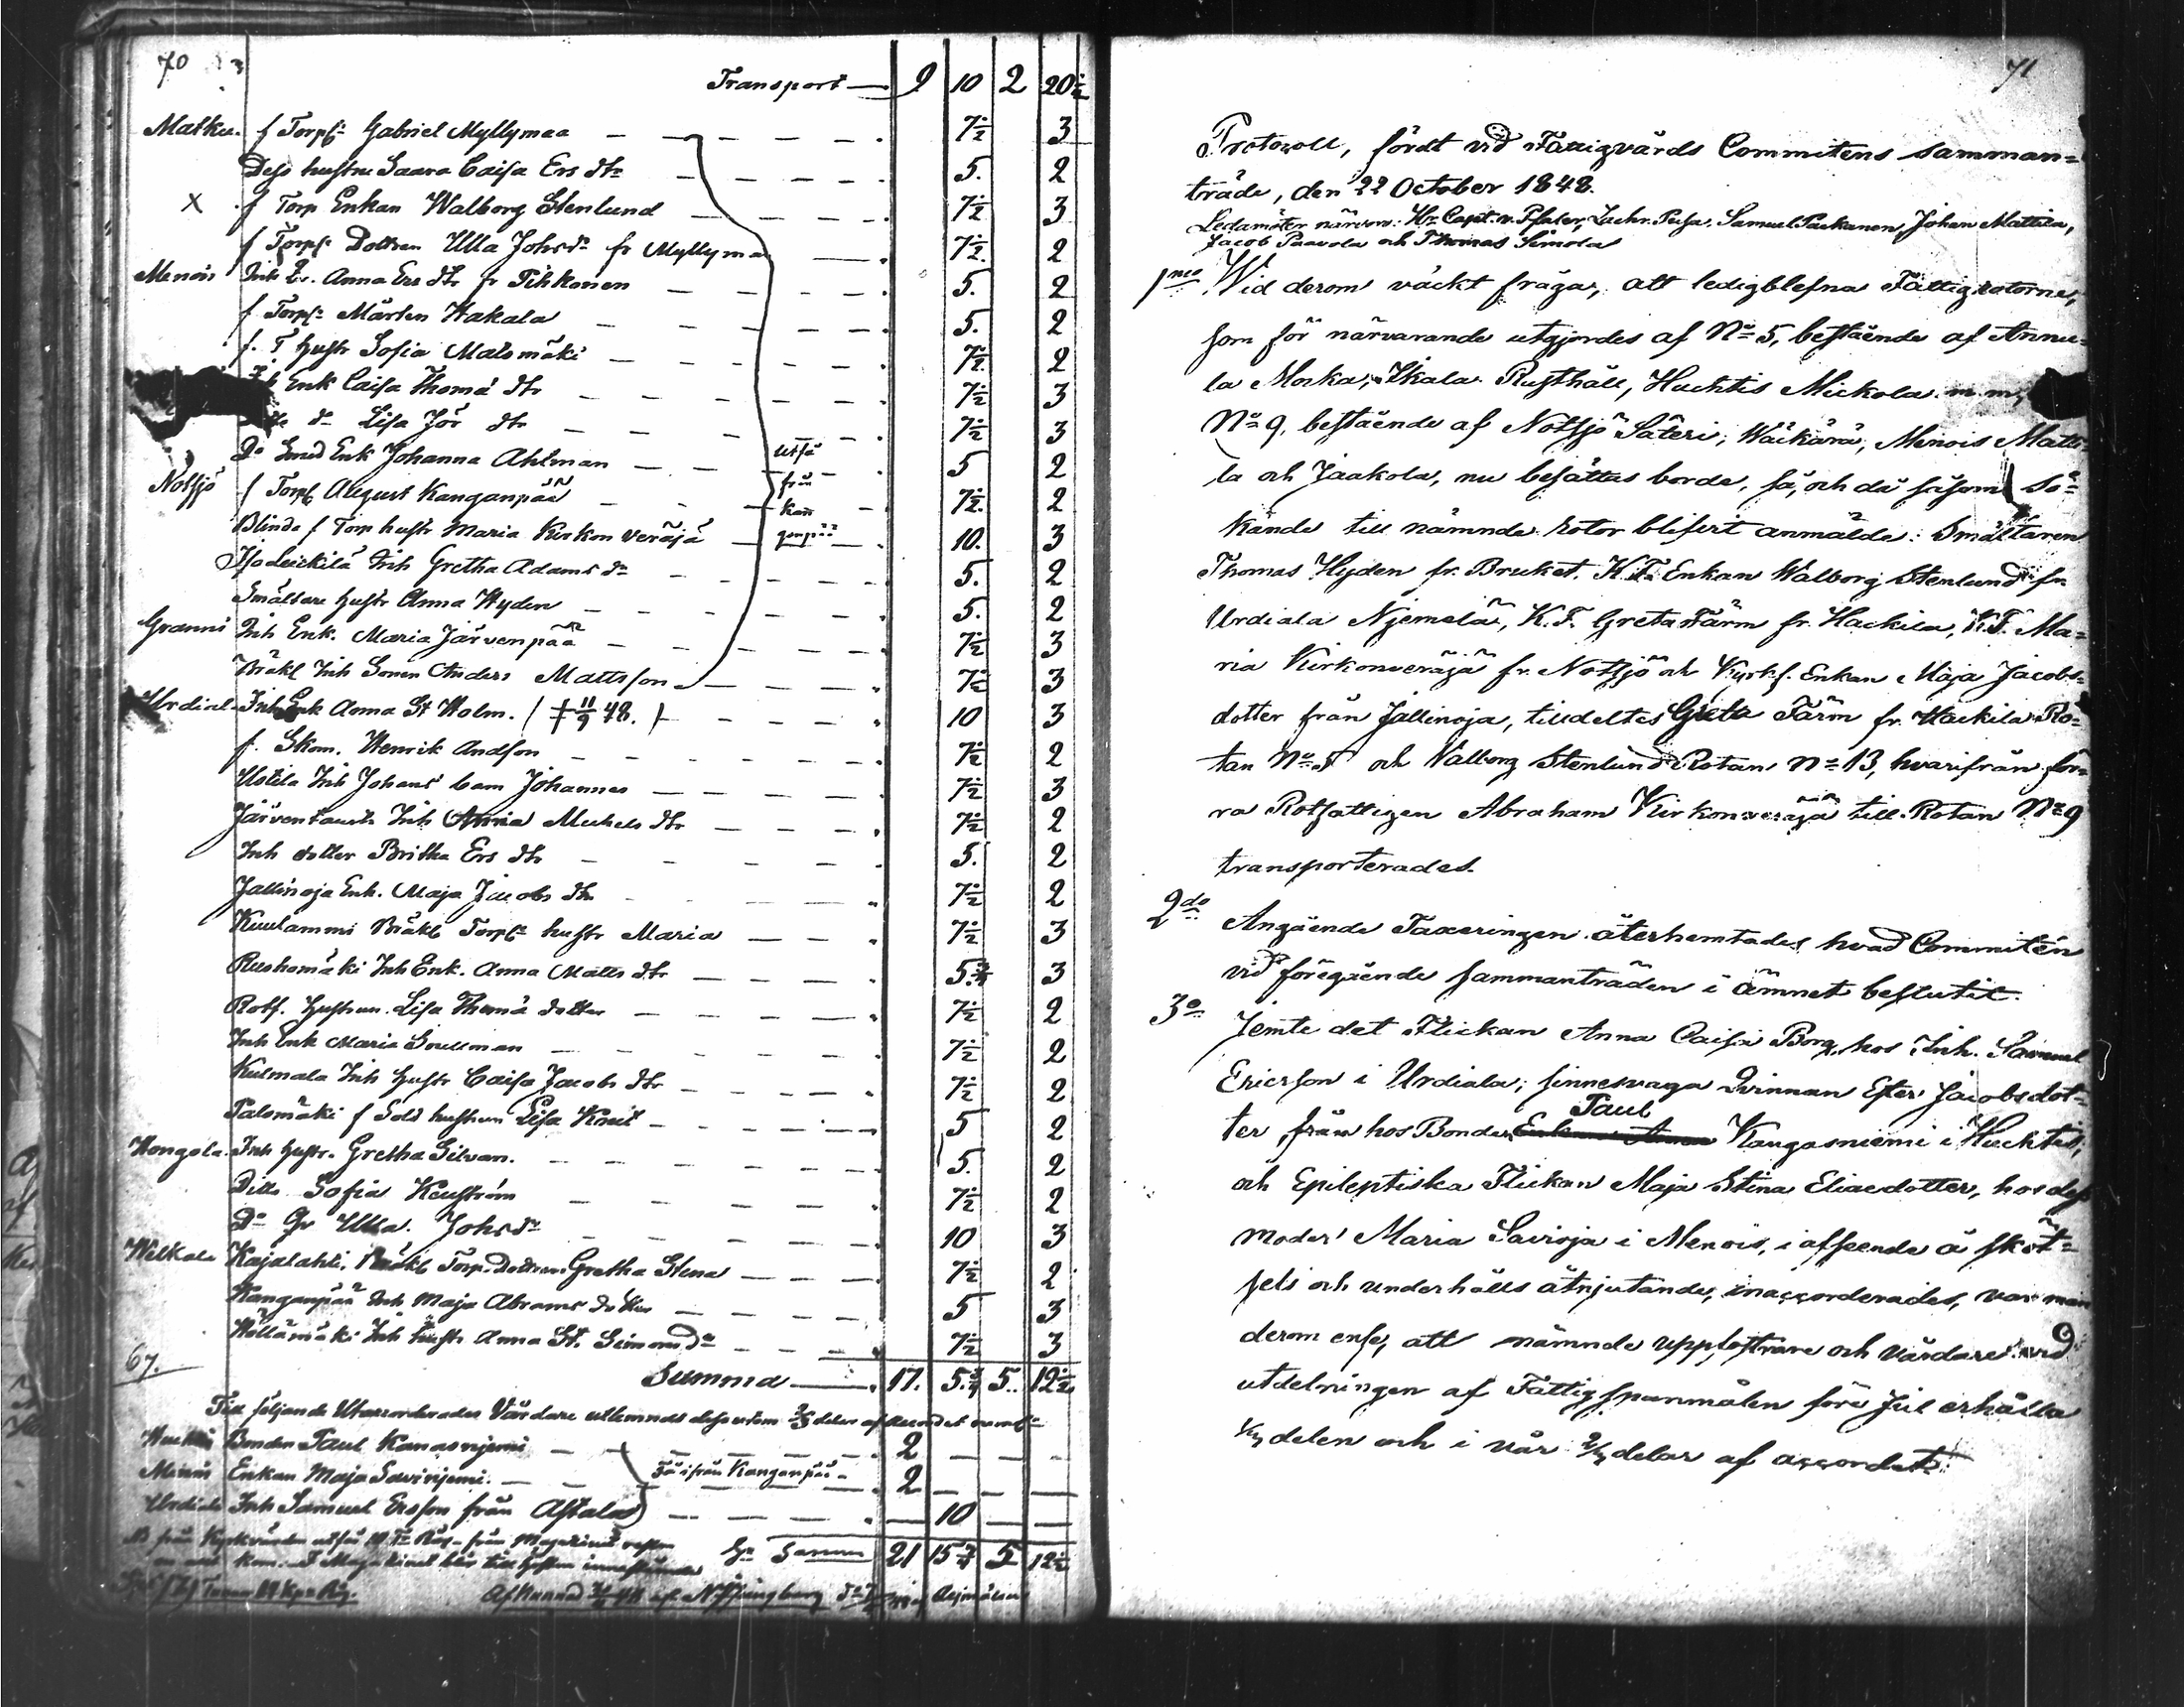 70
Transport — 9 10 2 20½
Matku. f Torp. Gabriel Myllymaa — — — 7½ 3
Dess hustru Saara Caisa Ers dtr — — — 5. 2
X f Torp Enkan Walborg Stenlund — — — 7½ 3
f Torp. Dottren Ulla Johsdr fr Myllymaa — 7½. 2
Menois Inh Anna Ers dtr fr Tihkonen — — — 5. 2
f Torp. Mårten Hakala — — — 5. 2
f. T hustr Sofia Matomäki — — — 7½ 2
Enk Caisa Thomä dtr — — — 7½ 3
do Lisa Jör dtr — — — 7½ 3
Do Smed Enk Johanna Ahlman — — utfå 5 2
Notsjö f Torp August Kanganpää — — från 7½. 2
Blinde f Torp hustr Maria Kirkonveräjä — kan ganpää 10. 3
Inh Gretha Adams dr — — — 5. 2
Smältare hustr Anna Hyden — — — 5. 2
Granni Inh Enk. Maria Järvenpää — — — 7½ 3
Bräkl Inh Sonen Anders Mattsson — — — 7½ 3
Urdial. Inh Enk Anna St Holm. (‡ 11/9 48.) — — — 10 3
f. Skom. Henrik Andson — — — 7½ 2
Ustila Inh Johans barn Johannes — — — 7½ 3
Järventausta Inh Anna Michels dtr — — — 7½ 2
Inh dotter Britha Ers dtr — — — 5. 2
Jallinoja Enk. Maja Jacobs dtr — — — 7½ 2
Kuulammi Bräkl Torp. hustr Maria — — — 7½ 3
Ruohomäki Inh Enk. Anna Matts dtr — — — 5¾ 3
Rotf. Hustrun Lisa Thomä dotter — — — 7½ 2
Inh Enk Maria Soullman — — — 7½ 2
Kulmala Inh hustr Caisa Jacobs dtr — — — 7½ 2
Palomäki f Sold hustrun Lisa Knut — — — 5 2
Hongola. Inh Hustr. Gretha Silvan. — — — 5. 2
Ditto Sofia Kenström — — — 7½ 2
Do Ulla Johsdr — — — 10 3
Welkala Kajalahti, Bräkl Torp. Dottren Gretha Stena — — — 7½ 2
Kanganpää Inh Maja Abrams dotter — — — 5 3
Höllämäki Inh hustr Anna St. Simonsdr — — — 7½ 3
67.
Summa — 17. 5.¾ 5. 12½
Till följande Utaccorderades Vårdare utlemnas dessutom ⅔ delen af
Bonden Paul Kanasnjemi — — 2 — — —
Menois Enkan Maja Savinjemi. — — Få ifrån Kanganpää 2 — — —
Urdiala Inh Samuel Ersson från Astala — — — 10 — —
Sr Summa 21 15¾ 5 12½
71
Protocoll, fördt vid Fattigvårds Commitens samman=
träde, den 22 October 1848.
Ledamöter närvoro: Hr. Capt. v. Pfaler, Zachr. Samuel Packanen, Johan Mattila,
Jacob Paavola och Thomas Simola
1mo Wid derom väckt fråga, att ledigblefna Fattigrotorne,
som för närvarande utgjordes af No 5, bestående af Annu=
la Moska, Ikala Rusthåll, Huchtis Mickola m m,
No 9, bestående af Notsjö Säteri, Wäkärä, Menois Matti=
la och Jaakola, nu besättas borde, så, och då såsom sö=
kande till nämnde rotor blifvit anmälde: Smältaren
Thomas Hyden fr. Bruket, K F. Enkan Walborg Stenlund fr.
Urdiala Njemelä, K. F. Greta Färm fr. Hackila, K. F. Ma=
ria Kirkonveräjä fr. Notsjö och Kyrkf. Enkan Maja Jacobs=
dotter från Jallinoja, tilldeltes Greta Färm fr. Hackila Ro=
tan No 5 och Walborg Stenlund Rotan No 13, hvarifrån för=
ra Rotfattigen Abraham Kirkonveräjä till Rotan No 9
transporterades.
2do Angående Taxeringen återhemtades hvad Committén
vid föregående sammanträden i ämnet beslutit.
3o Jemte det Flickan Anna Caisa Borg, hos Inh. Samuel
Ericsson i Urdiala, sinnesvaga Qvinnan Ester Jacobsdot=
ter, från hos Bonden Paul Kangasniemi i Huchtis,
och Epileptiska Flickan Maja Stina Eliaedotter, hos dess
moder Maria Savioja i Menois, i afseende å sköt=
sels och underhålls åtnjutande, inaccorderades, var man
derom ense, att nämnde uppfostrare och vårdare vid
utdelningen af Fattigspanmålen före Jul erhålla
⅓ delen och i vår ⅔ delar af accordet.